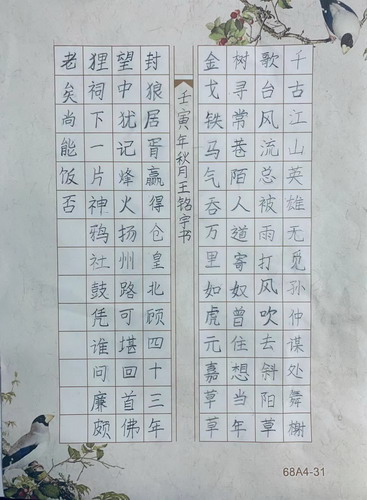 千古江山英雄无觅孙仲谋处舞榭
歌台风流总被雨打风吹去斜阳草
树寻常巷陌人道寄奴曾住想当年
金戈铁马气吞万里如虎元嘉草草
封狼居胥赢得仓皇北顾四十三年
望中犹记烽火扬州路可堪回首佛
狸祠下一片神鸦社鼓凭谁问廉颇
老矣尚能饭否
壬寅年秋月王铭宇书
68A4-31